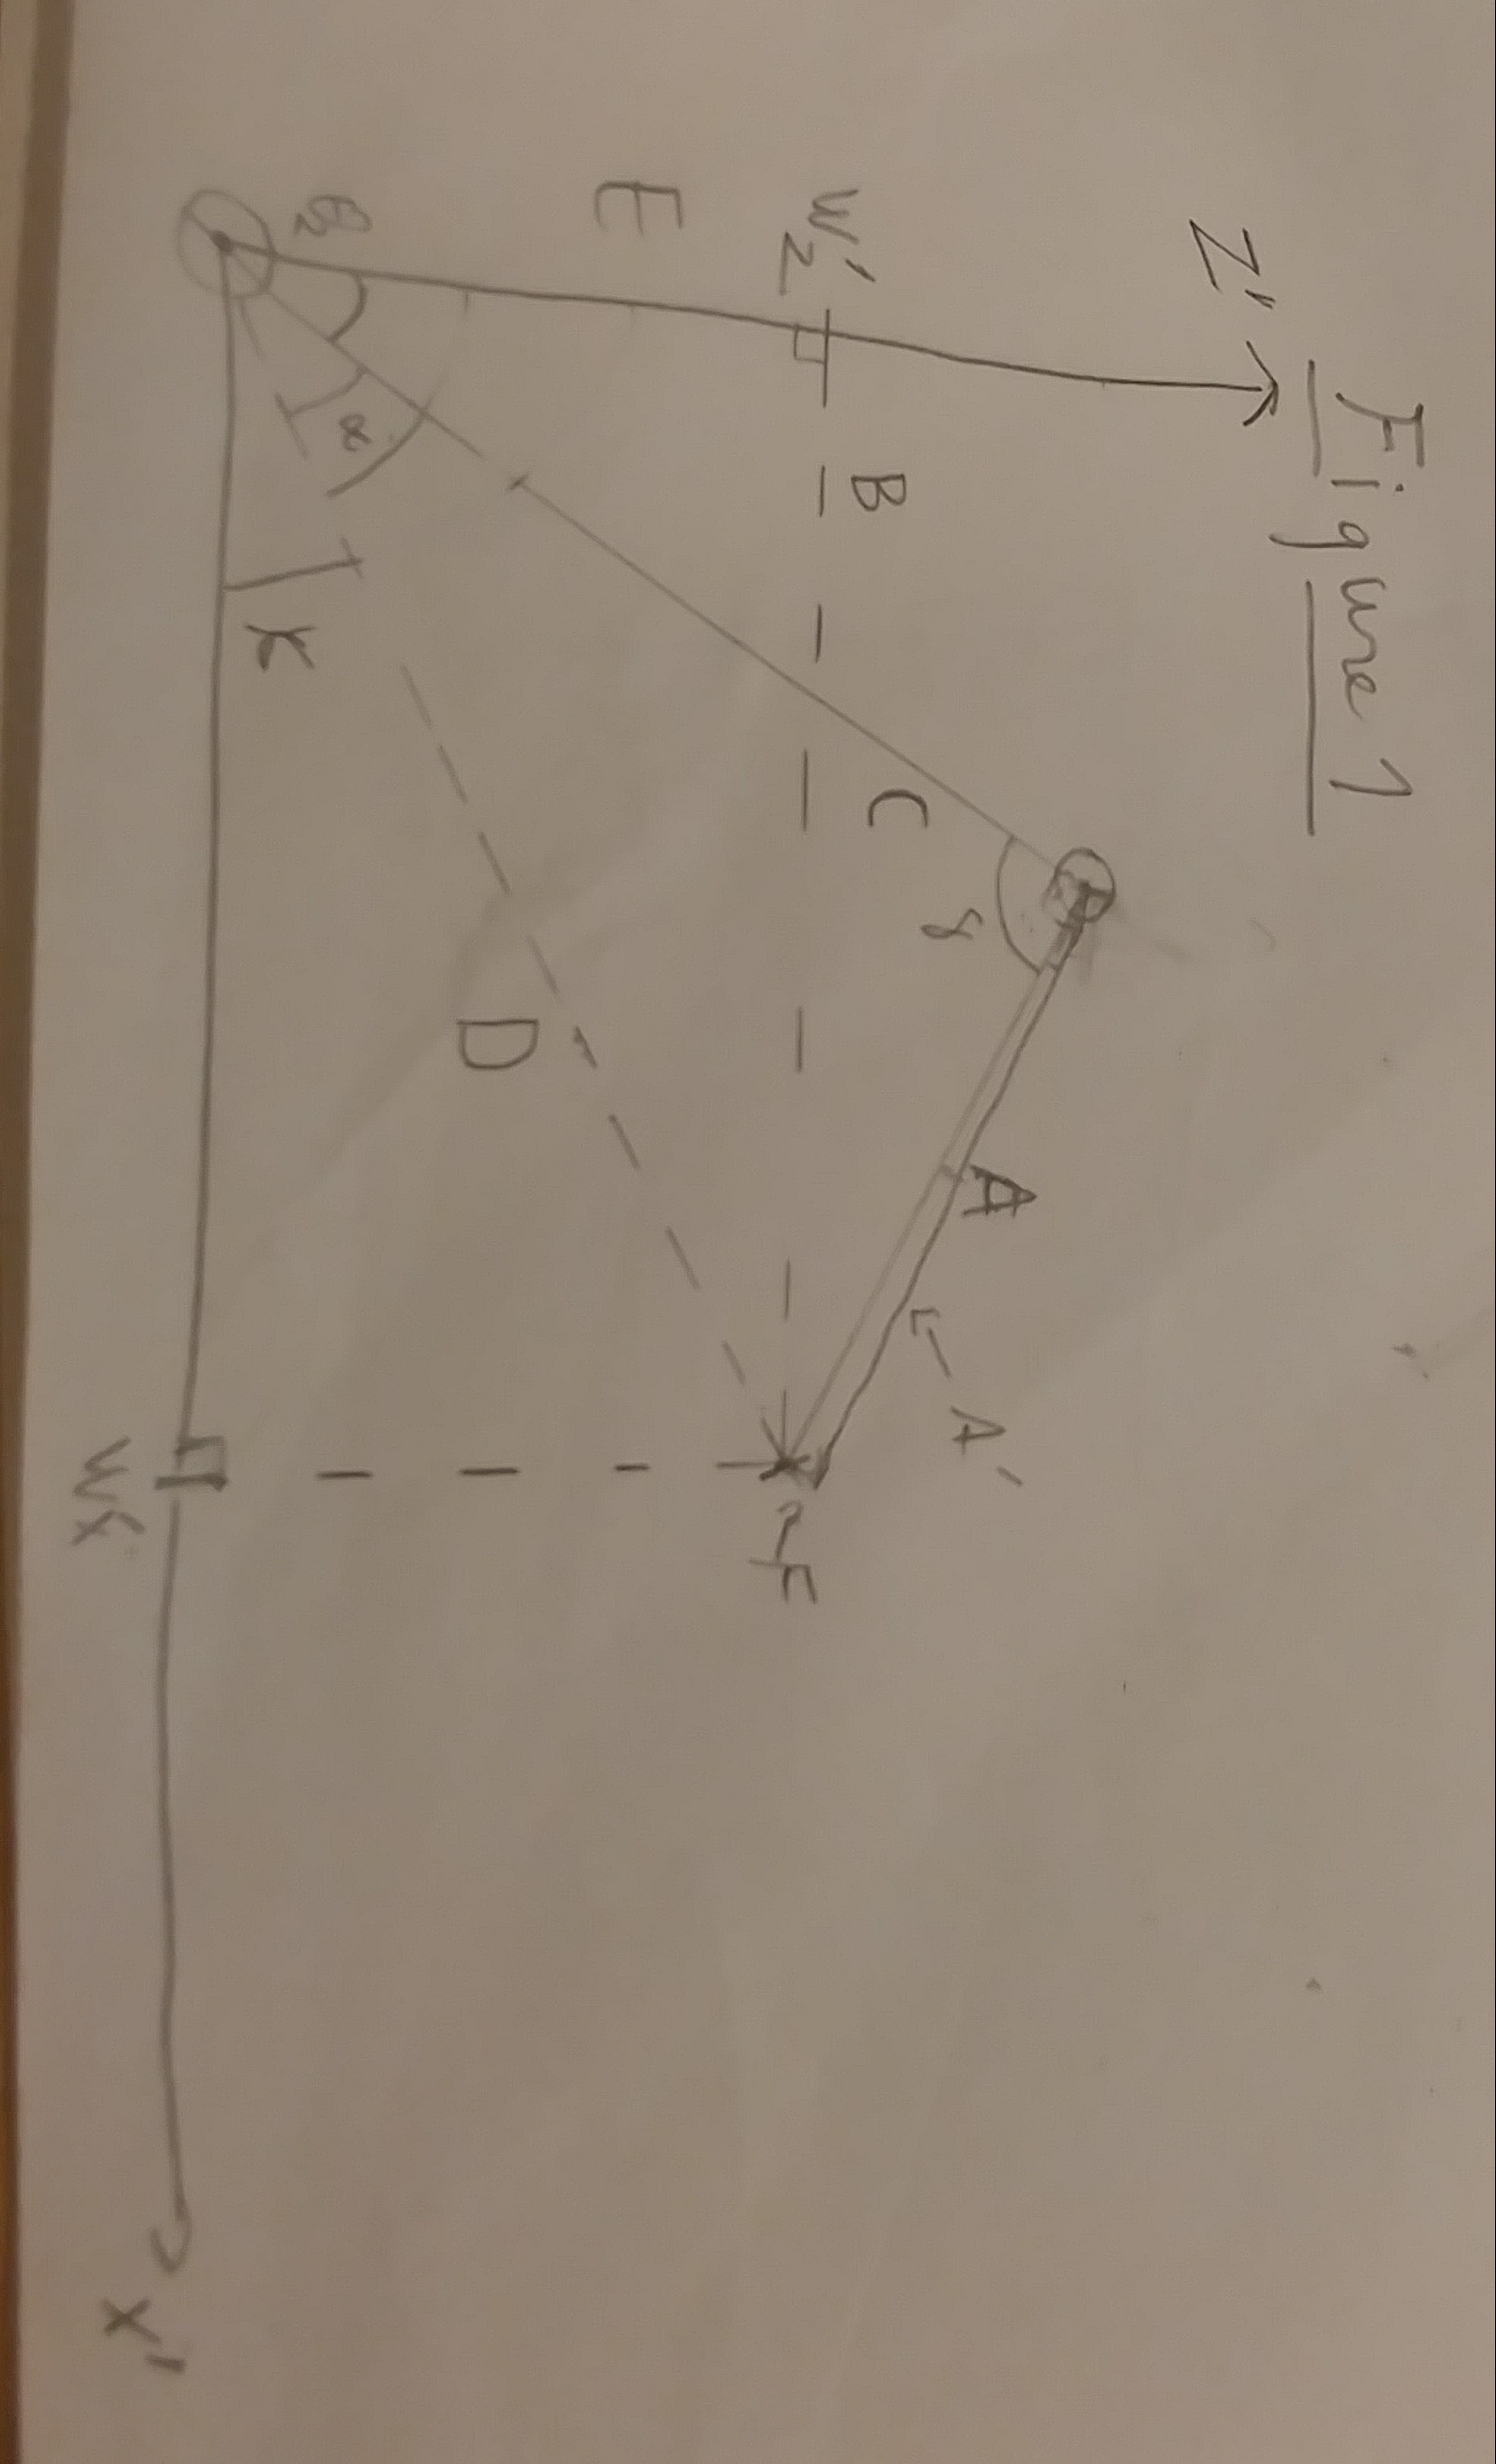 Figure 1
Z'
A
A'
γ
C
B
W'z
F
E
D
θ2
α
K
W'x
X'